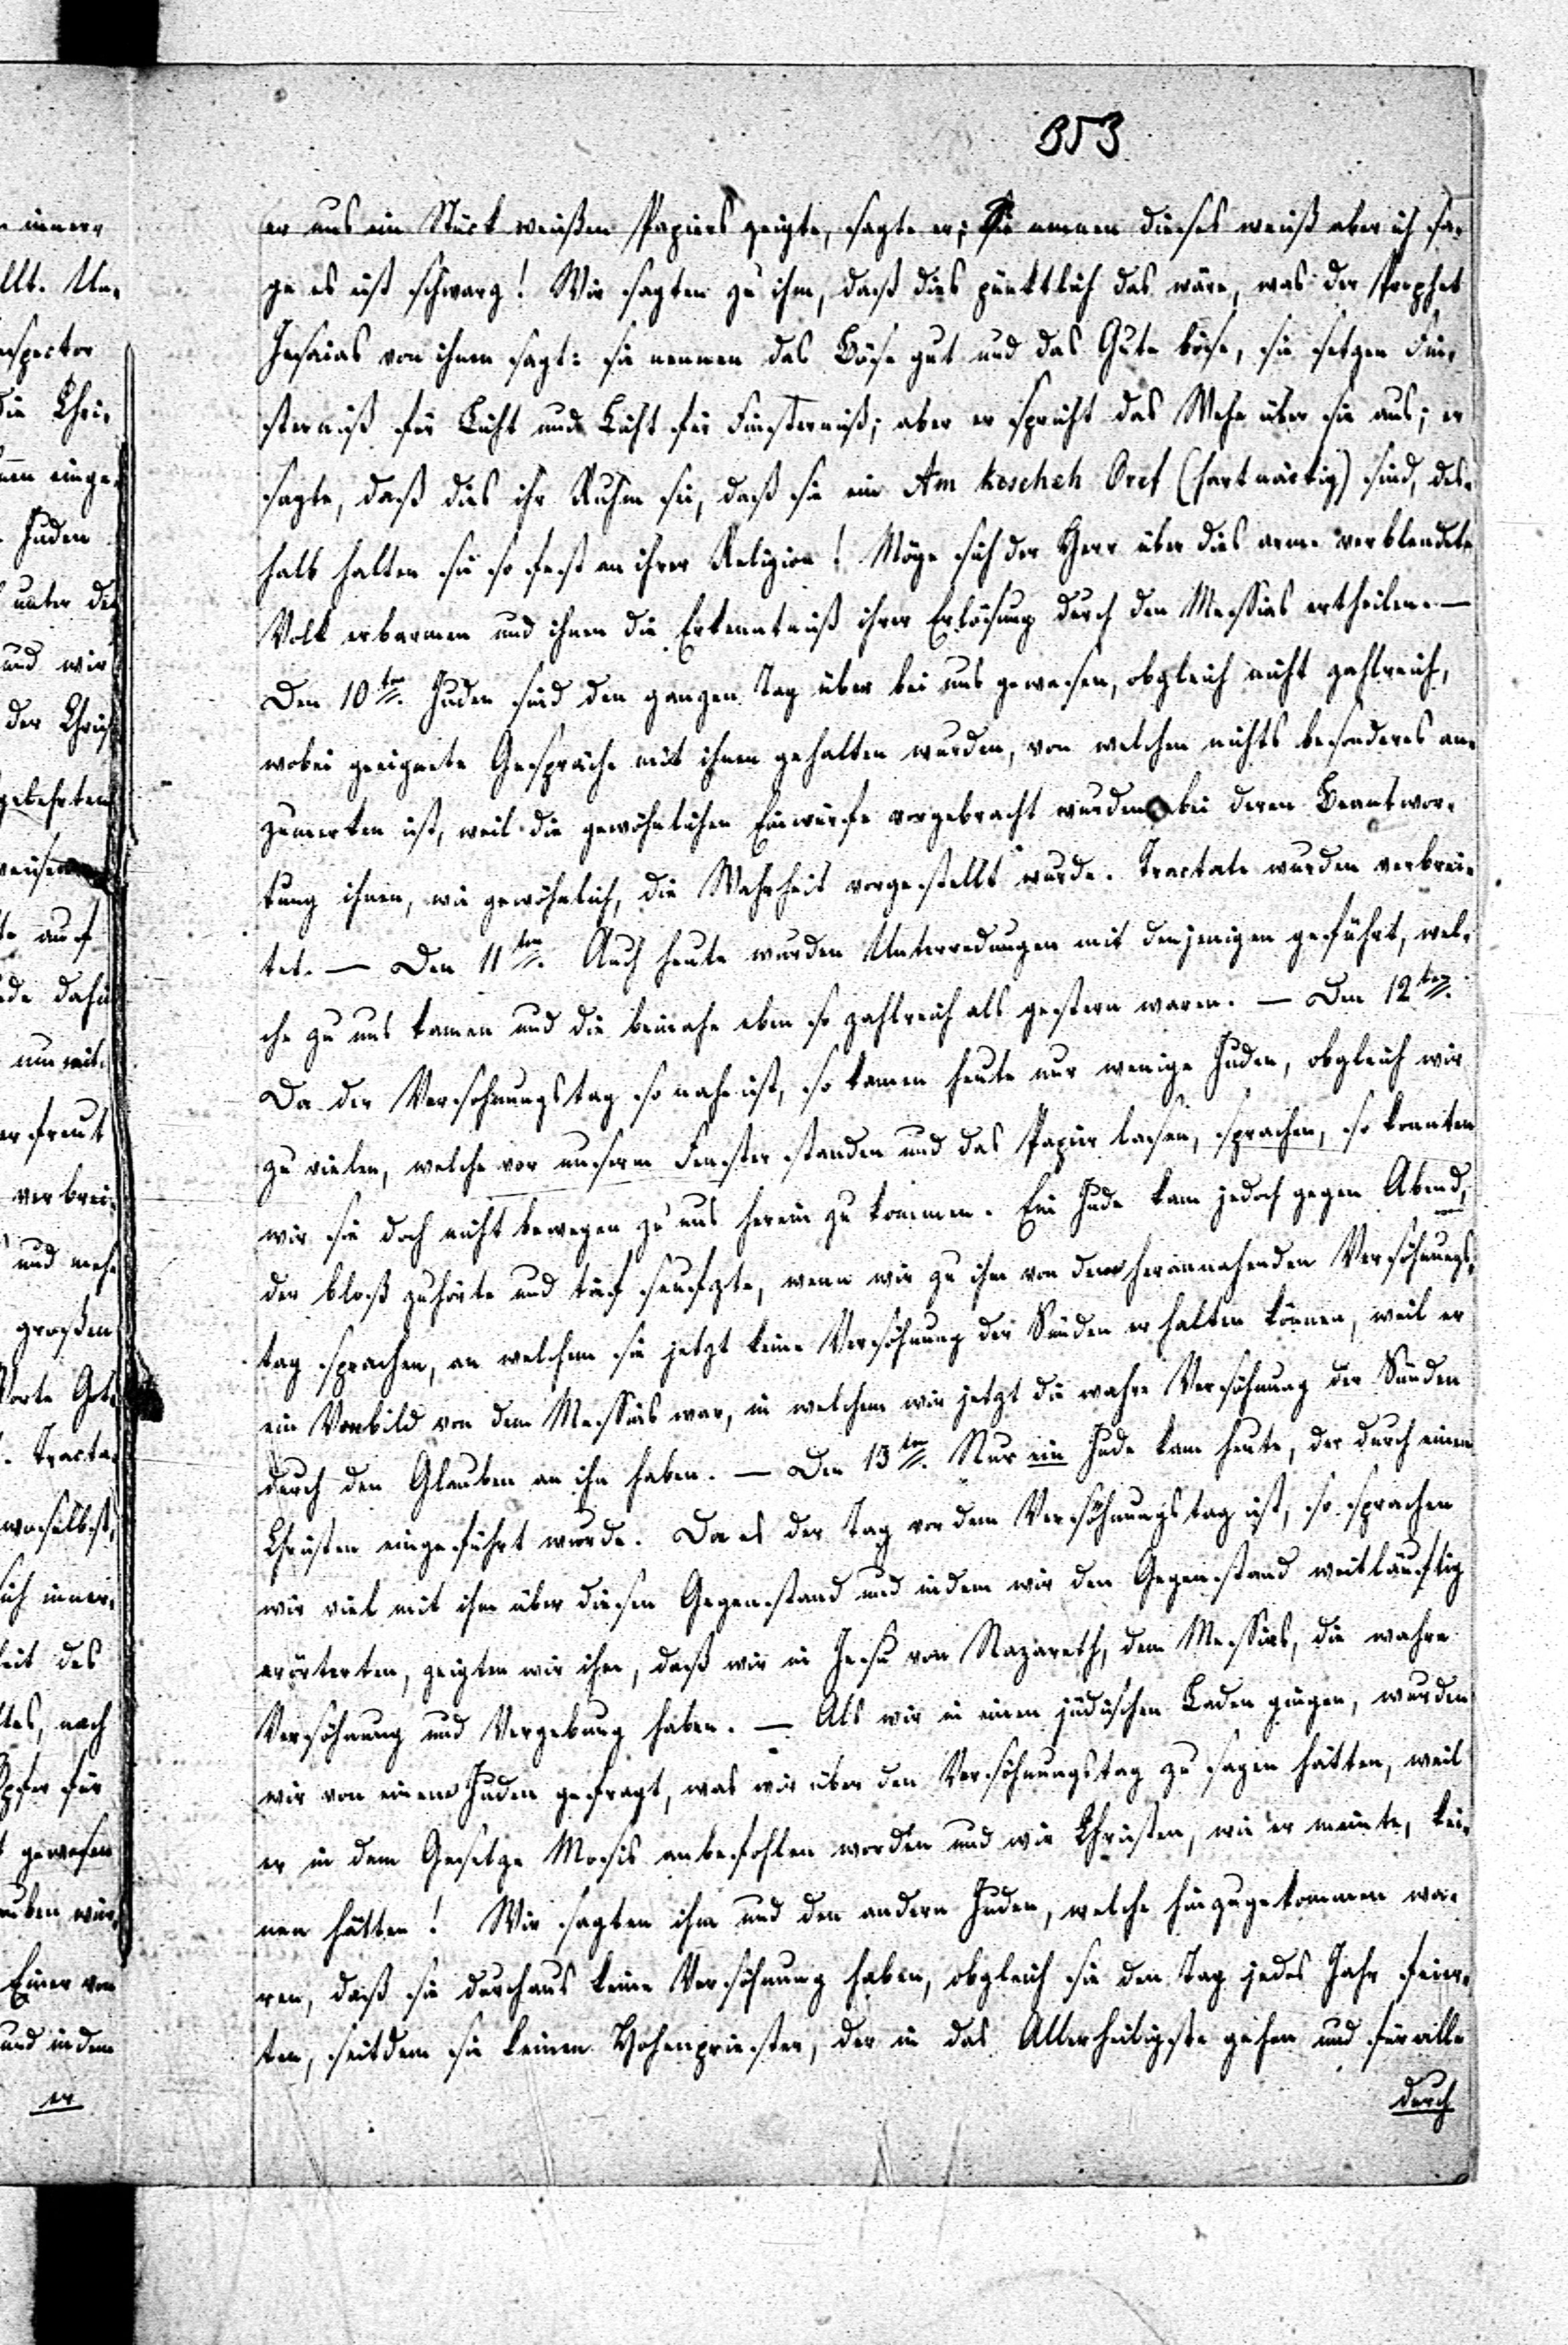 353
er uns ein Stück weißen Papiers zeigte, sagte er; Sie nennen dieses weiß aber ich sa-
ge es ist schwarz! Wir sagten zu ihm, daß dies pünktlich das wäre, was der Prophet
Jesaias von ihnen sagt: sie nennen das Böse gut und das Gute böse, sie setzen Fin-
sterniß für Licht und Licht für Finsterniß; aber er spricht das Wehe über sie aus; er
sagte, daß dies ihr Ruhm sei, daß sie ein Am kescheh Oref (hartnäckig) sind, des-
halb halten sie so fest an ihrer Religion! Möge sich der Herr über dies arme verblendete
Volk erbarmen und ihnen die Erkenntniß ihrer Erlösung durch den Messias ertheilen. —
Den 10ten. Juden sind den ganzen Tag über bei uns gewesen, obgleich nicht zahlreich,
wobei geeignete Gespräche mit ihnen gehalten wurden, von welchen nichts besonderes an-
zumerken ist, weil die gewöhnlichen Einwürfe vorgebracht wurden bei deren Beantwor-
tung ihnen, wie gewöhnlich, die Wahrheit vorgestellt wurde. Tractate wurden verbrei-
tet. — Den 11ten. Auch heute wurden Unterredungen mit denjenigen geführt, wel-
che zu uns kamen und die beinahe eben so zahlreich als gestern waren. — Den 12ten.
Da der Versöhnungstag so nahe ist, so kamen heute nur wenige Juden, obgleich wir
zu vielen, welche vor unserm Fenster standen und das Papier lasen, sprachen, so konnten
wir sie doch nicht bewegen zu uns herein zu kommen. Ein Jude kam jedoch gegen Abend,
der bloß zuhörte und tief seufzte, wenn wir zu ihm von dem herannahenden Versöhnungs-
tag sprachen, an welchem sie jetzt keine Versöhnung der Sünden erhalten können, weil er
ein Vorbild von dem Messias war, in welchem wir jetzt die wahre Versöhnung der Sünden
durch den Glauben an ihn haben. — Den 13ten. Nur ein Jude kam heute, der durch einen
Christen eingeführt wurde. Da es der Tag vor dem Versöhnungstag ist, so sprachen
wir viel mit ihm über diesen Gegenstand und indem wir den Gegenstand weitläuftig
erörterten, zeigten wir ihm, daß wir in Jesu von Nazareth, dem Messias, die wahre
Versöhnung und Vergebung haben. — Als wir in einen jüdischen Laden gingen, wurden
wir von einem Juden gefragt, was wir über den Versöhnungstag zu sagen hätten, weil
er in dem Gesetze Mosis anbefohlen worden und wir Christen, wie er meinte, kei-
nen hätten! Wir sagten ihm und den andern Juden, welche hinzugekommen wa-
ren, daß sie durchaus keine Versöhnung haben, obgleich sie den Tag jedes Jahr feier-
ten, seitdem sie keinen Hohenpriester, der in das Allerheiligste gehen und für alle
durch